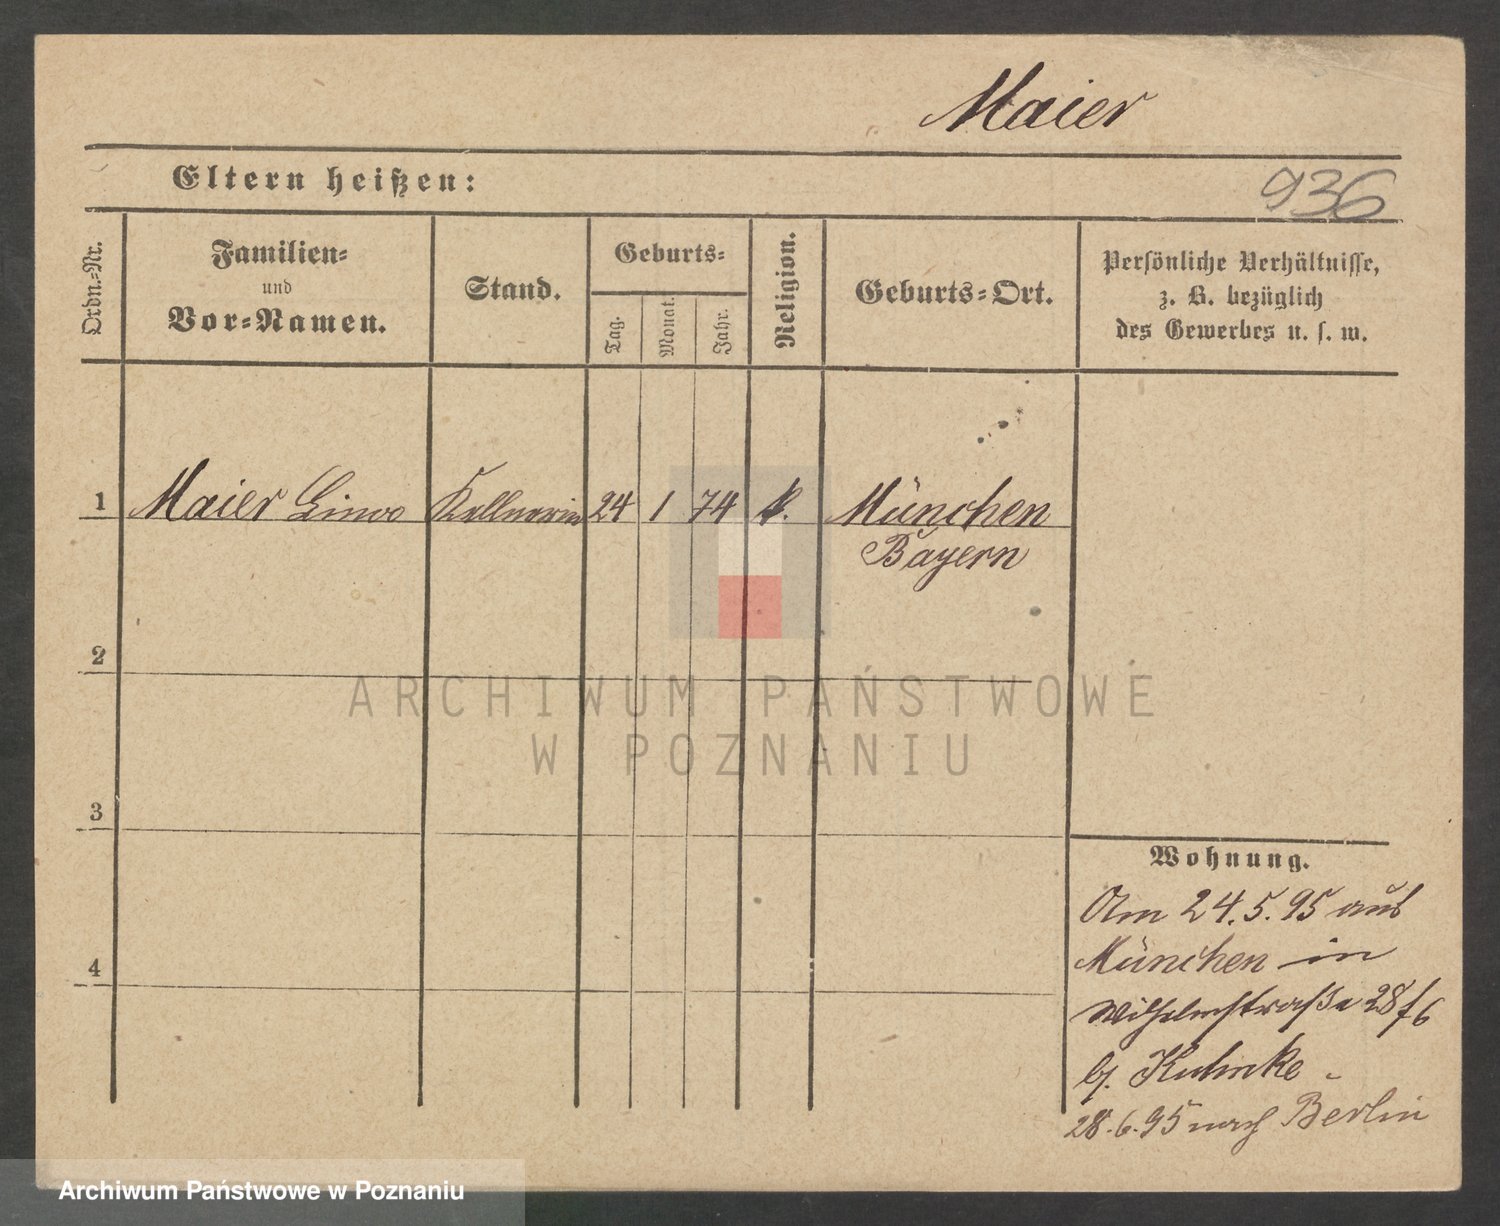 Maier
Eltern heißen:
936
Ordn.=Nr.
Familien=
und
Vor=Namen.
Stand.
Geburts=
Tag.
Monat.
Jahr.
Religion.
Geburts=Ort.
Persönliche Verhältnisse,
z. B. bezüglich
des Gewerbes u. s. w.
1 Maier Kellnerin 24 1 74 k. München
Bayern
2
ARCHIWUM PAŃSTWOWE
W POZNANIU
3
Wohnung.
Am 24.5.95 aus
München in
4
Wilhelmstraße 28
b. Kuhnke
28.6.95 nach Berlin
Archiwum Państwowe w Poznaniu